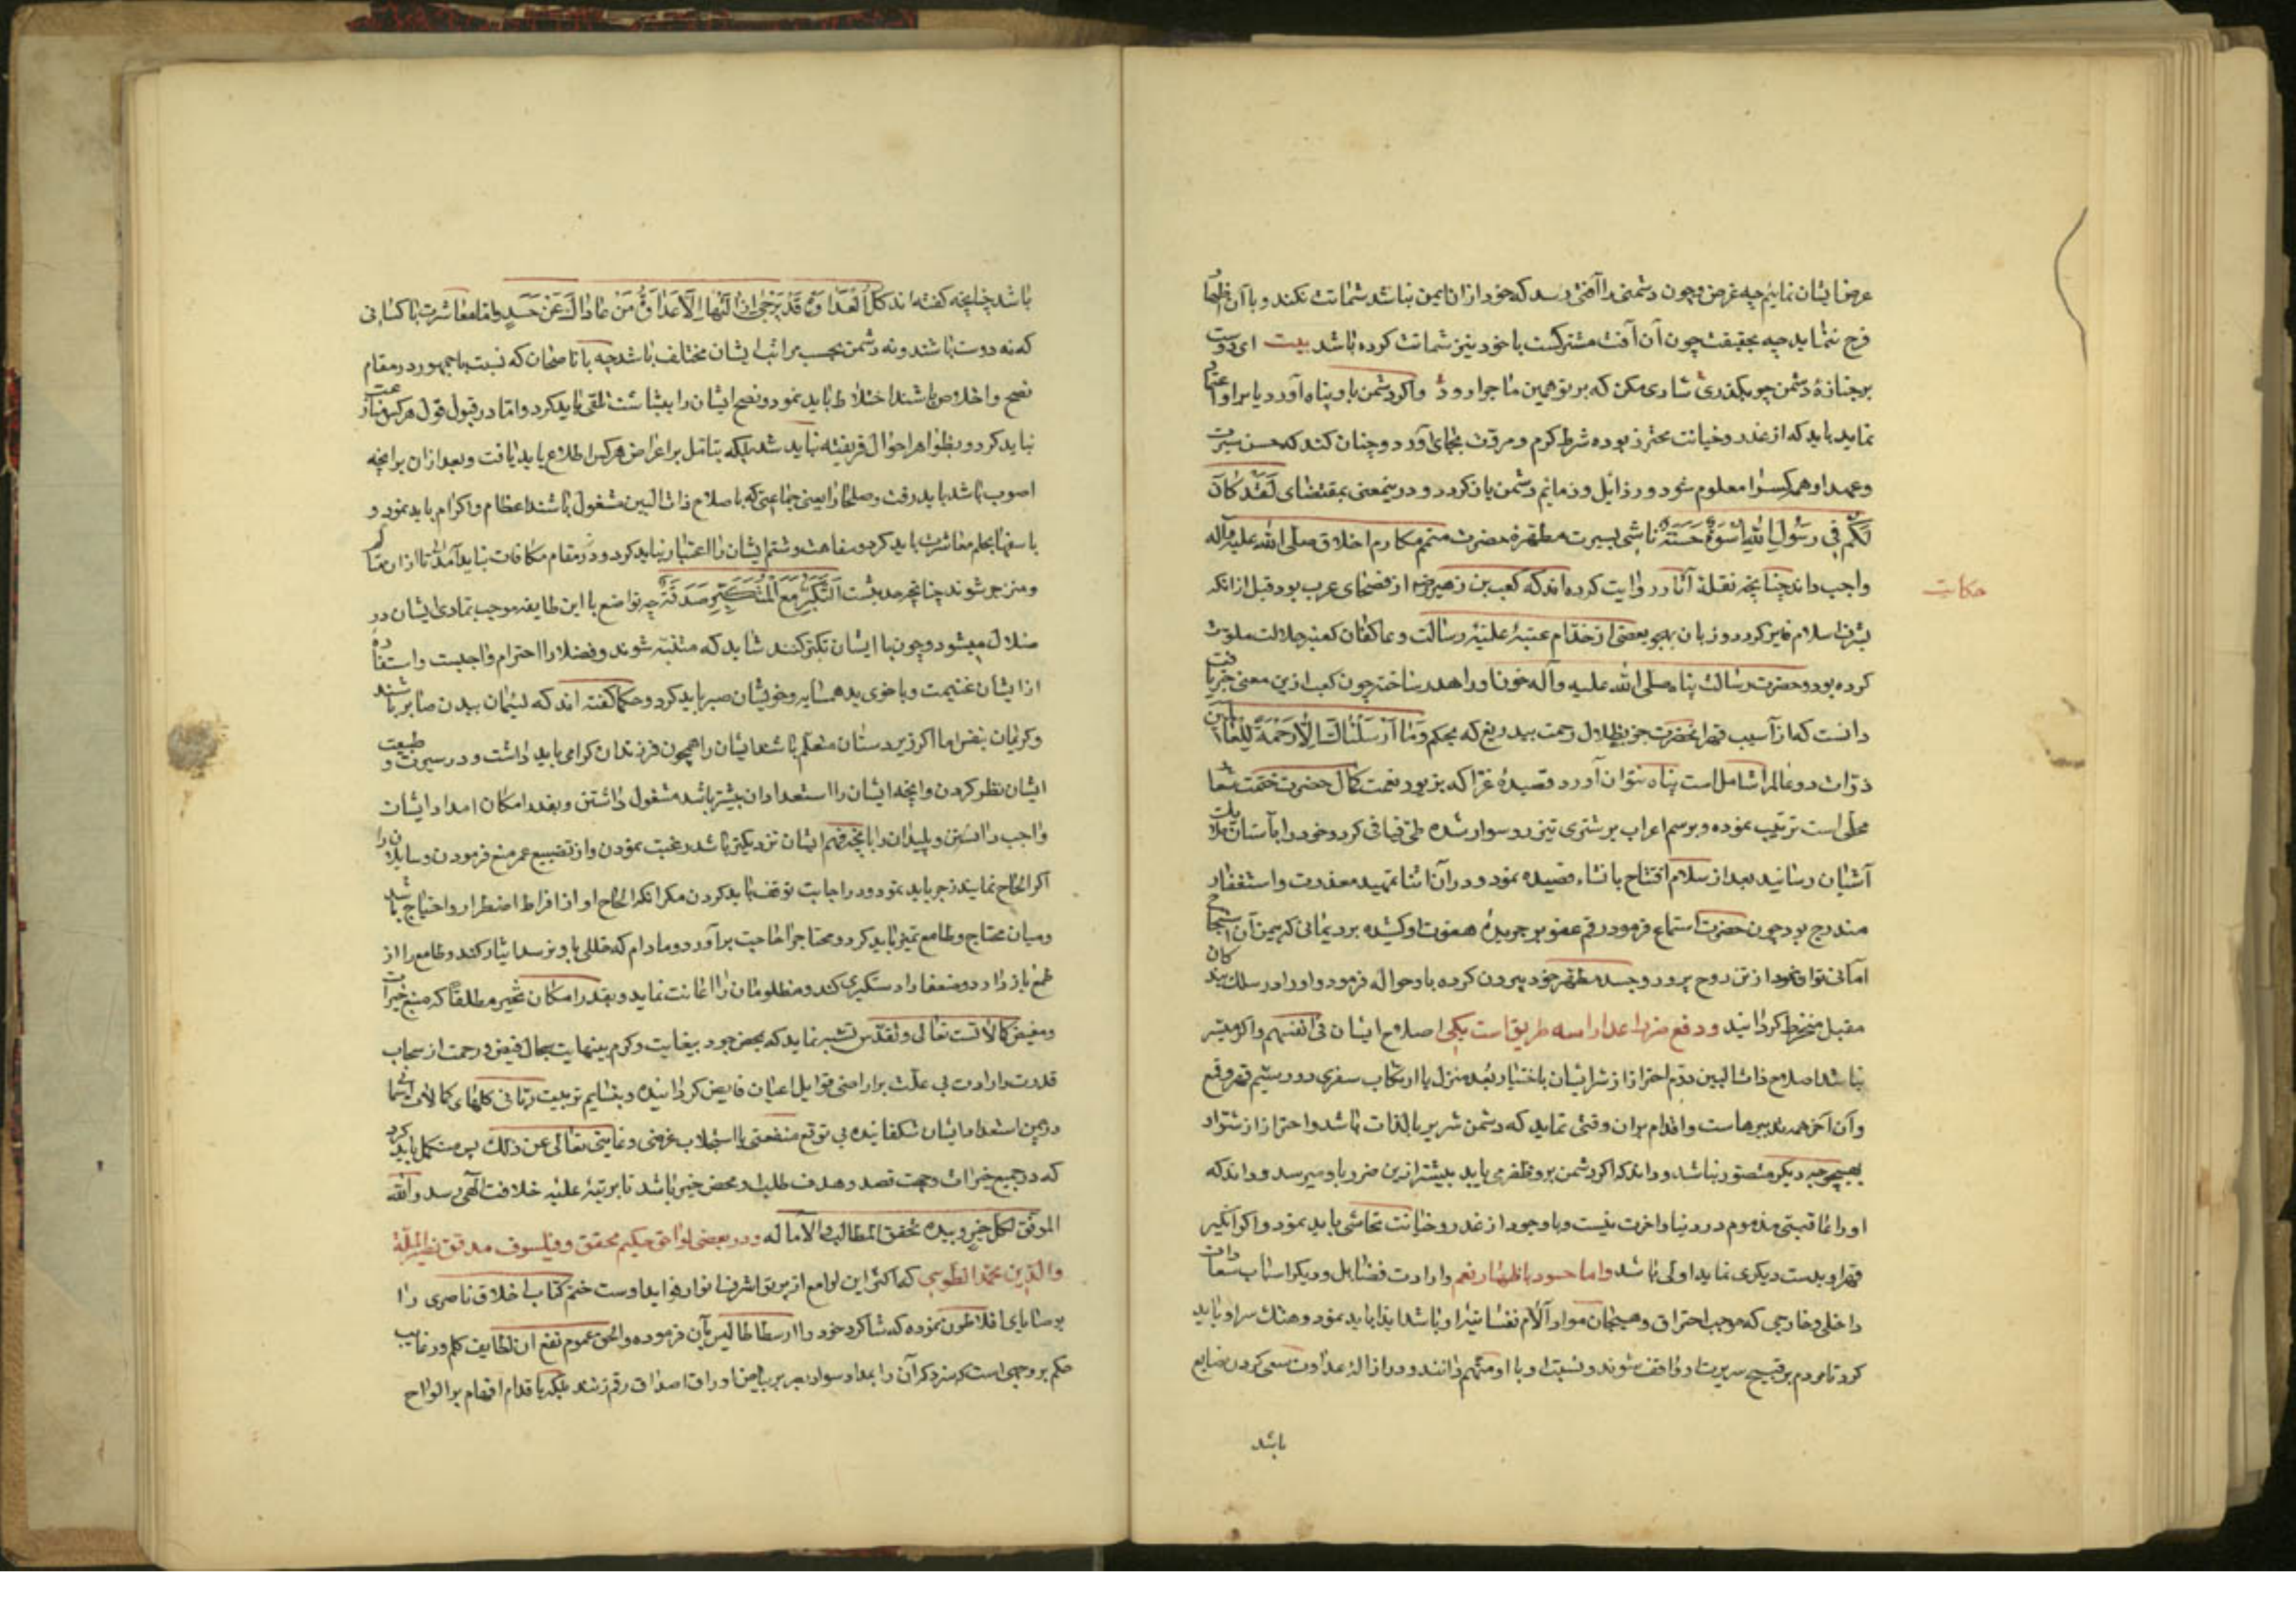 عرض ایشان نماییم چه غرض و چون دشمنی را آفتی رسد که خود ازان ایمن نباشد شماتت نکند و با آن اظهار
فرح ننماید چه بحقیقت چون آن آفت مشترکست با خود نیز شماتت کرده باشد بیت ای دوست
بر جنازهٔ دشمن چو بگذری شادی مکن که بر تو همین ماجرا رود و اگر دشمن باو پناه آورد یا برو اعتماد
نماید باید که از غدر و خیانت محترز بوده شرط کرم و مروت بجای آورد و چنان کند که حسن سیرت
و عهد او همه کس را معلوم شود و رذائل و ذمائم دشمن باز گردد و درینمعنی بمقتضای لَقَدْ كَانَ
لَكُمْ فِي رَسُولِ اللهِ أُسْوَةٌ حَسَنَةٌ تاسی بسیرت مطهرهٔ حضرت متمم مکارم اخلاق صلی الله علیه وآله
واجب داند چنانچه نقلهٔ آثار روایت کرده اند که کعب بن زهیر رض از فصحای عرب بود قبل ازانکه
بشرف اسلام فایز گردد و زبان بهجو بعضی از خدام عتبهٔ علیهٔ رسالت و عاکفان کعبهٔ جلالت ملوث
کرده بود و حضرت رسالت پناه صلی الله علیه وآله خون او را هدر ساخته چون کعب ازین معنی خبر یافت
دانست که از آسیب قهر آنحضرت جز بظلال رحمت بیدریغ که بحکم وَمَا أَرْسَلْنَاكَ إِلَّا رَحْمَةً لِلْعَالَمِينَ
ذرات دو عالم را شاملست پناه نتوان آورد قصیدهٔ غرا که بزیور نعت کمال حضرت ختمت شعار
محلی است ترتیب نموده و برسم اعراب بر شتری تیزرو سوار شده طی فیافی کرد و خود را بآستان ملایک
آشیان رسانید بعد از سلام افتتاح بانشاء قصیده نمود و در آن اثنا تمهید معذرت و استغفار
مندرج بود چون حضرت استماع فرمود رقم عفو بر جریدهٔ هفوت او کشیده برد یمانی که یمن آن استنجاح
امانی توان نمود از تن روح پرور و جسد مطهر خود بیرون کرده باو حواله فرمود و او را در سلک بندکان
مقبل منخرط گردانید و دفع ضرر اعدا را سه طریق است یکی اصلاح ایشان فی انفسهم و اگر میسر
نباشد اصلاح ذات البین دوم احتراز از شر ایشان باختیار بُعد منزل یا ارتکاب سفری دور سیم قهر و قمع
و آن آخر همه تدبیرهاست و اقدام بران وقتی نماید که دشمن شریر بالذات باشد و احتراز از شر او
بهیچوجه دیگر متصور نباشد و داند که اگر دشمن برو ظفر می یابد بیشتر ازین ضرر باو میرسد و داند که
او را عاقبتی مذموم در دنیا و آخرت نیست و با وجود از غدر و خیانت تحاشی باید نمود و اگر آنکه
قهر او بدست دیگری نماید اولی باشد و اما حسود باظهار نعم و ارادت فضایل و دیگر اسباب سعادات
داخلی و خارجی که موجب احتراق و هیجان مواد آلام نفسانیهٔ او باشد ایذا باید نمود و هتک سر او باید
کرد تا مردم بر قبح سریرت او واقف شوند و نسبت او با او متهم دانند و در ازالهٔ عداوت سعی کردن ضایع
باشد
حکایت
باشد چنانچه گفته اند كُلُّ الْعَدَاوَةِ قَدْ يُرْجَى إِزَالَتُهَا إِلَّا عَدَاوَةُ مَنْ عَادَاكَ عَنْ حَسَدٍ و اما معاشرت با کسانی
که نه دوست باشند و نه دشمن بحسب مراتب ایشان مختلف باشد چه با ناصحان که نسبت با جمهور در مقام
نصح و اخلاص باشند اختلاط باید نمود و نصح ایشان را ببشاشت تلقی باید کرد و اما در قبول قول هرکس مسارعت
نباید کرد و بظواهر احوال فریفته نباید شد بلکه بتامل بر اعراض هرکس اطلاع باید یافت و بعد ازان برانچه
اصوب باشد باید رفت و صلحا را یعنی جماعتی که باصلاح ذات البین مشغول باشند اعظام و اکرام باید نمود و
با سفها بحلم معاشرت باید کرد و سفاهت و شتم ایشان را اعتبار نباید کرد و در مقام مکافات نباید آمد تا ازان متالم
و منزجر شوند چنانچه حدیثست التَّكَبُّرُ مَعَ الْمُتَكَبِّرِ صَدَقَةٌ چه تواضع با این طایفه موجب تمادی ایشان در
ضلال میشود و چون با ایشان تکبر کنند شاید که متنبه شوند و فضلا را احترام واجبست و استفاده
از ایشان غنیمت و با خوی بد همسایه و خویشان صبر باید کرد و حکما گفته اند که لئیمان ببدن صابر باشند
و کریمان بنفس اما اگر زیردستان متعلم باشند ایشان را همچون فرزندان گرامی باید داشت و در سیرت و طبیعت
ایشان نظر کردن و انچه ایشان را استعداد آن بیشتر باشد مشغول داشتن و بقدر امکان امداد ایشان
واجب دانستن و بلیدان را بانچه بفهم ایشان نزدیکتر باشد رغبت نمودن و از تضییع عمر منع فرمودن و سایلان را
اگر الحاح نمایند زجر باید نمود و در اجابت توقف باید کردن مگر انکه الحاح او از افراط اضطرار و احتیاج باشد
و میان محتاج و طامع تمیز باید کرد و محتاج را حاجت برآورد و مادام که خللی باو نرسد ایثار کند و طامع را از
طمع باز دارد و ضعفا را دستگیری کند و مظلومان را اعانت نماید و بقدر امکان بخیر مطلقا که منبع خیرات
و مفیض کمالاتست تعالی و تقدس تشبه نماید که بمحض جود بیغایت و کرم بینهایت سجال فیض و رحمت از سحاب
قدرت و ارادت بی علت بر اراضی قوابل اعیان فایض گردانیده و بنسایم تربیت ربانی گلهای کمالات اسمائی
در چمن استعداد ایشان شکفانیده بی توقع منفعتی یا استجلاب غرضی و غایتی تعالی عن ذلک پس متکمل باید کرد
که در جمیع خیرات وجهت قصد و هدف طلب او محض خیر باشد تا بمرتبهٔ علیهٔ خلافت الهی رسد والله
الموفق لکل خیر و بیده تحقق المطالب والآمال له و در بعضی لواحق حکیم محقق و فیلسوف مدقق نصیر الملة
والدین محمد الطوسی که اکثر این لوامع از پرتو اشراف انوار فواید اوست ختم کتاب اخلاق ناصری را
بوصایای افلاطون نموده که شاگرد خود را ارسطاطالیس بآن فرموده والحق عموم نفع آن لطایف کلم و رغایب
حکم بر وجهی است که سزد که آن را بمداد سواد بصر بر بیاض اوراق احداق رقم زنند بلکه باقلام افهام بر الواح